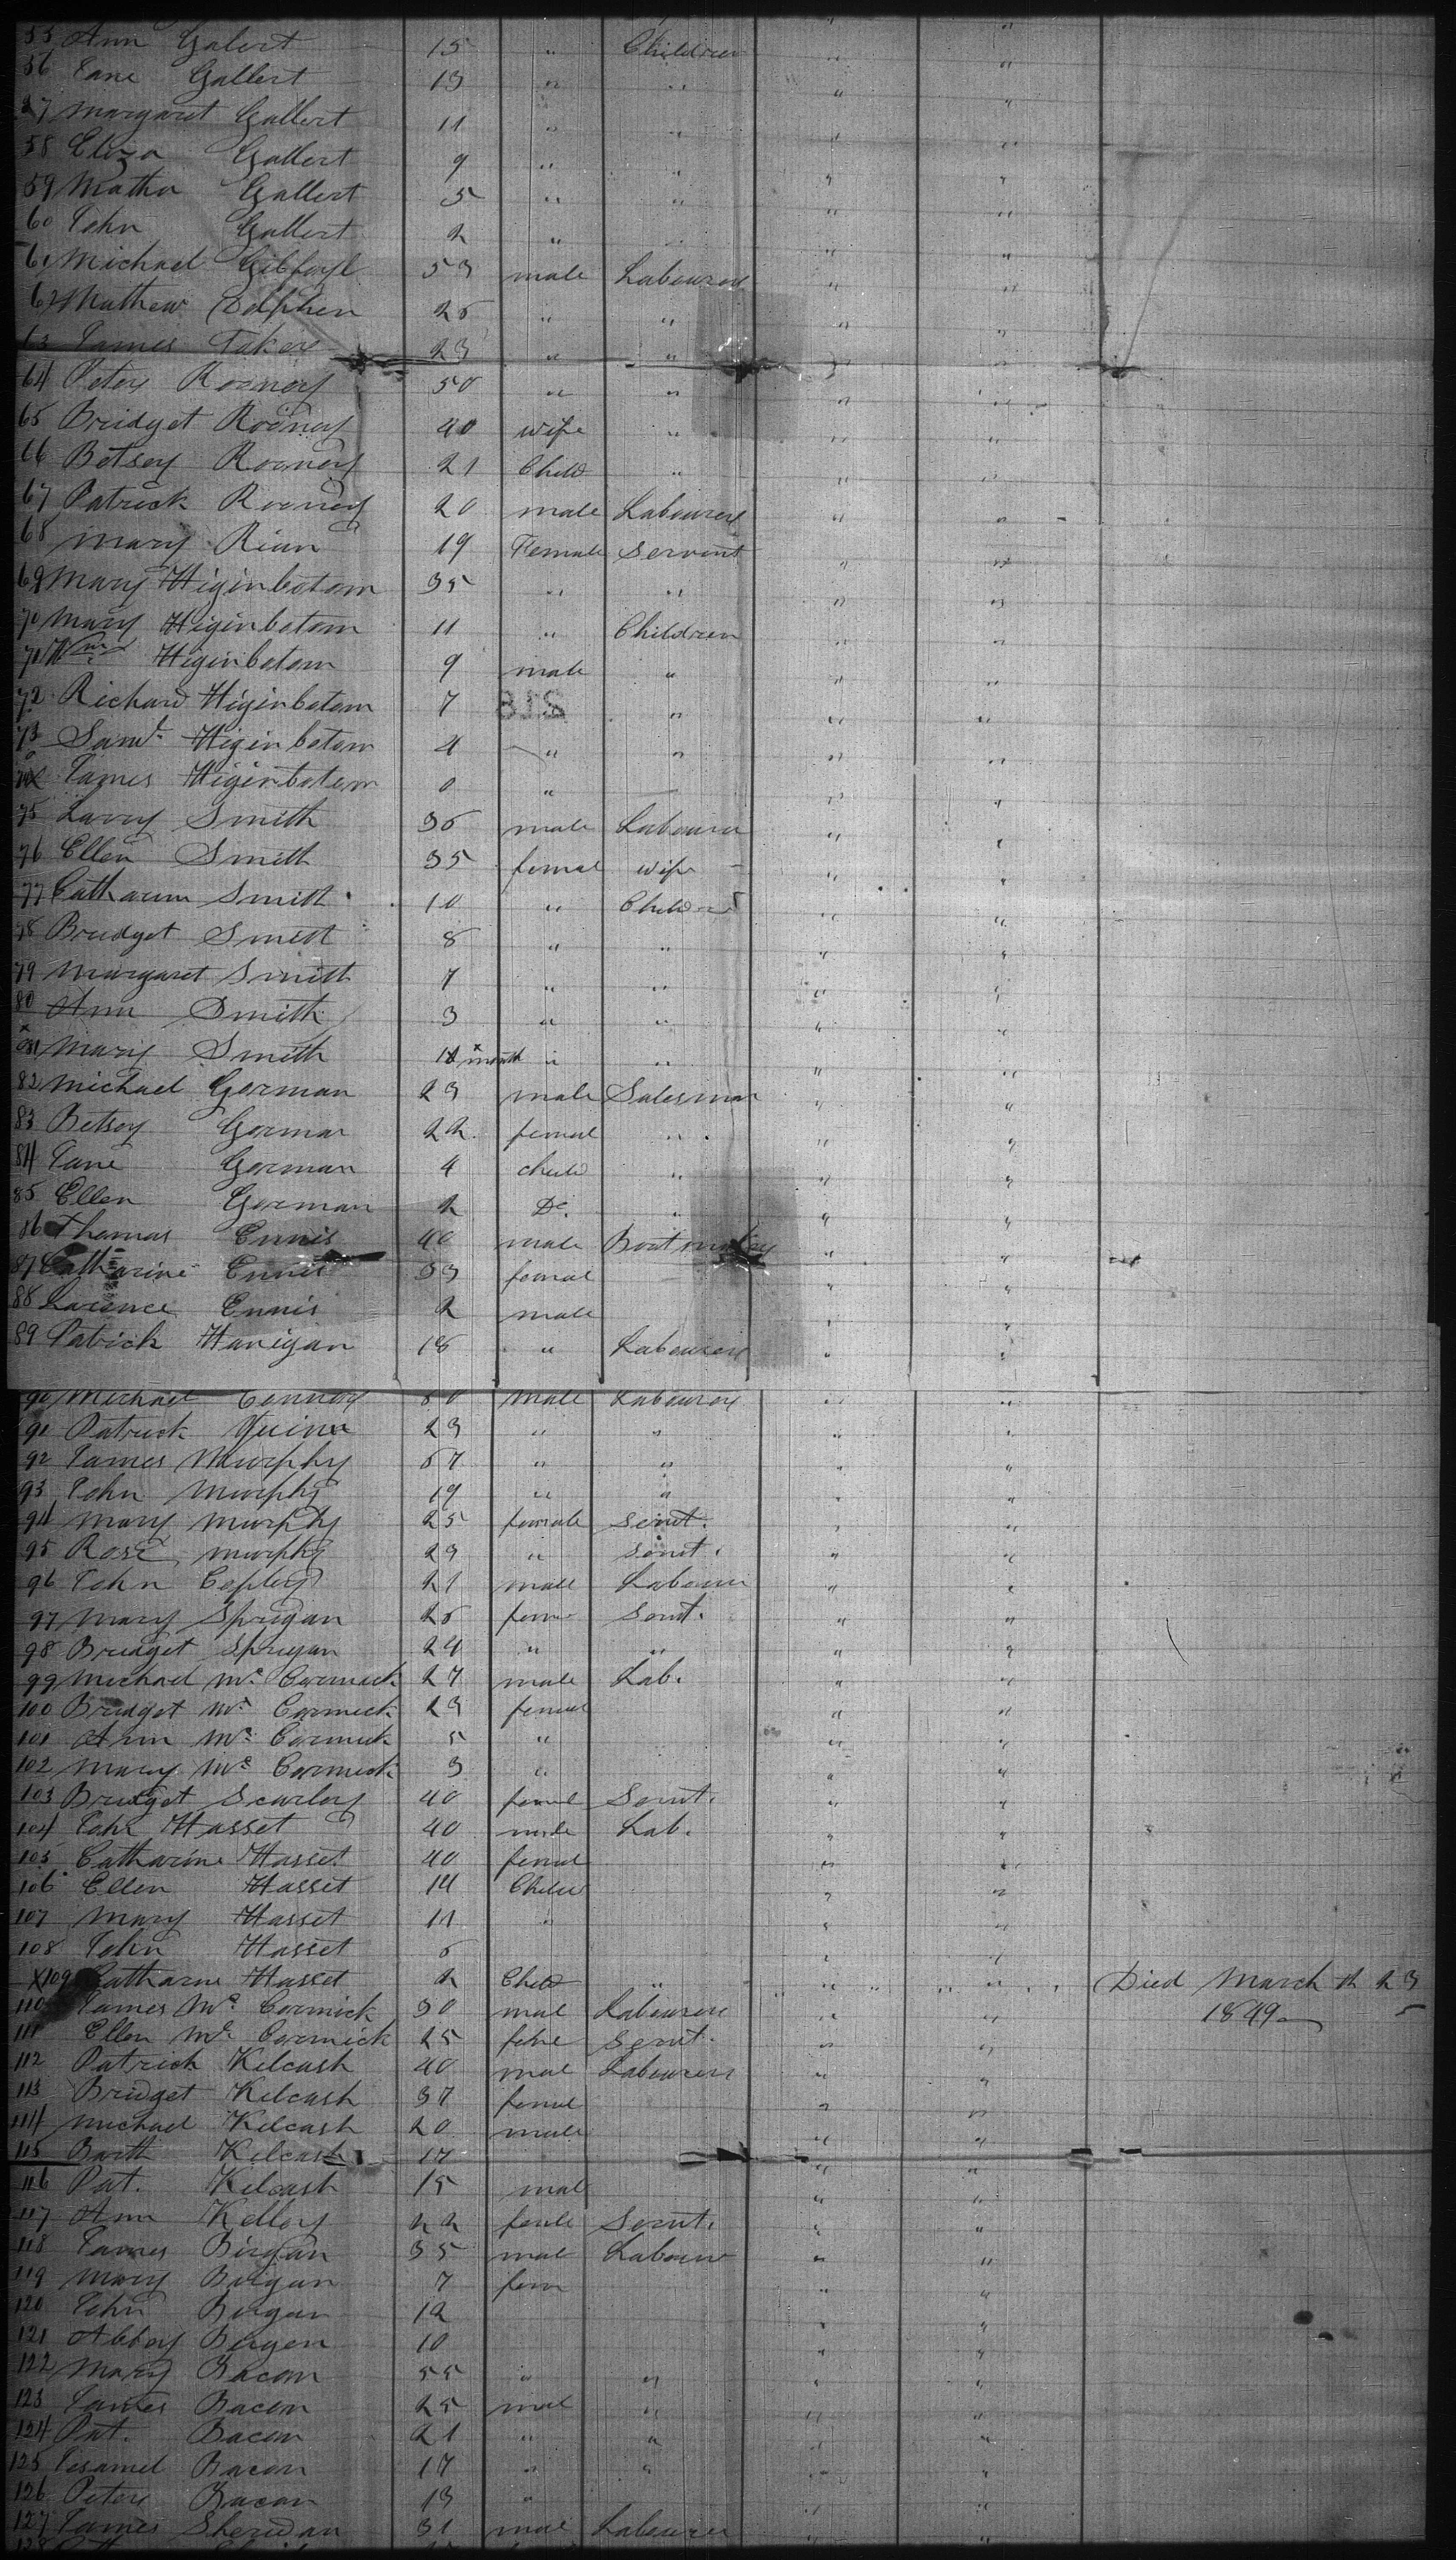 55 Ann Galert 15 " Children " "
56 Jane Gallert 13 " " " "
57 Margaret Gallert 11 " " " "
58 Eliza Gallert 9 " " " "
59 Matha Gallert 5 " " " "
60 John Gallert 2 " " " "
61 Michael 53 male Labourer " "
62 Mathew Dolphen 26 " " " "
63 James 23 " " " "
64 Peter Rooney 50 " " " "
65 Bridget Rooney 40 wife " " "
66 Betsey Rooney 21 Child " " "
67 Patrick Rooney 20 male Labourer " "
68 Mary Rian 19 Female Servant " "
69 Mary Higinbotom 35 " " " "
70 Mary Higinbotom 11 " Children " "
71 Wm Higinbotom 9 male " " "
72 Richard Higinbotom 7 " " "
73 Saml. Higinbotom 4 " " " "
James Higinbotom 0 " — " "
75 Larry Smith 36 male Labourer " "
76 Ellen Smith 35 femal wife – " "
77 Catharine Smith 10 " Children " "
78 Bridget Smith 8 " " " "
79 Margaret Smith 7 " " " "
80 Ann Smith 3 " " " "
81 Mary Smith month " " " "
82 Michael Gorman 23 male Salesman " "
83 Betsey Gorman 22 femal " " "
84 Jane Gorman 4 child " " "
85 Ellen Gorman 2 Do. " " "
86 Thomas Ennis 40 male " "
87 Catharine Ennis 33 femal " "
88 Larence Ennis 2 male " "
89 Patrick Hanigan 18 " Labourer " "
90 Michael male Labourer " "
91 Patrick Quinn 23 " " " "
92 James Murphy 67 " " " "
93 John Murphy 19 " " " "
94 Mary Murphy 25 female Servt. " "
95 Rose Murphy 23 " Servt. " "
96 John Copley 21 male Labourer " "
97 Mary Sprigan 26 feme Servt. " "
98 Bridget Sprigan 24 " " " "
99 Michael Mc Cormick 27 male Lab. " "
100 Bridget Mc Cormick 23 femal " "
101 Ann Mc Cormick 5 " " "
102 Mary Mc Cormick 3 " " "
103 Bridget Scurley 40 femal Servt. " "
104 John Hasset 40 male Lab. " "
105 Catharine Hasset 40 femal " "
106 Ellen Hasset 14 Child " "
107 Mary Hasset 11 " " "
108 John Hasset 6 " "
X109 Catharine Hasset 2 Child " " " Died March th 23
110 James Mc Cormick 30 mal Labourer " " 1849
111 Ellen Mc Cormick 25 feme Servt. " "
112 Patrick Kilcash 40 mal Labourer " "
113 Bridget Kilcash 37 femal " "
114 Michael Kilcash 20 male " "
115 Barth Kilcash 17 " "
116 Pat. Kilcash 15 mal " "
117 Ann Kelley 22 femle Servt. " "
118 James Birgan 35 mal Labourer " "
119 Mary Birgan 7 fem " "
120 John Birgan 12 " "
121 Abbey Birgen 10 " "
122 Mary Bacon 55 " " " "
123 James Bacon 25 mal " " "
124 Pat. Bacon 21 " " " "
125 Bacon 17 " " " "
126 Peter Bacon 13 " " "
127 James Sheridan 31 mal Labourer " "